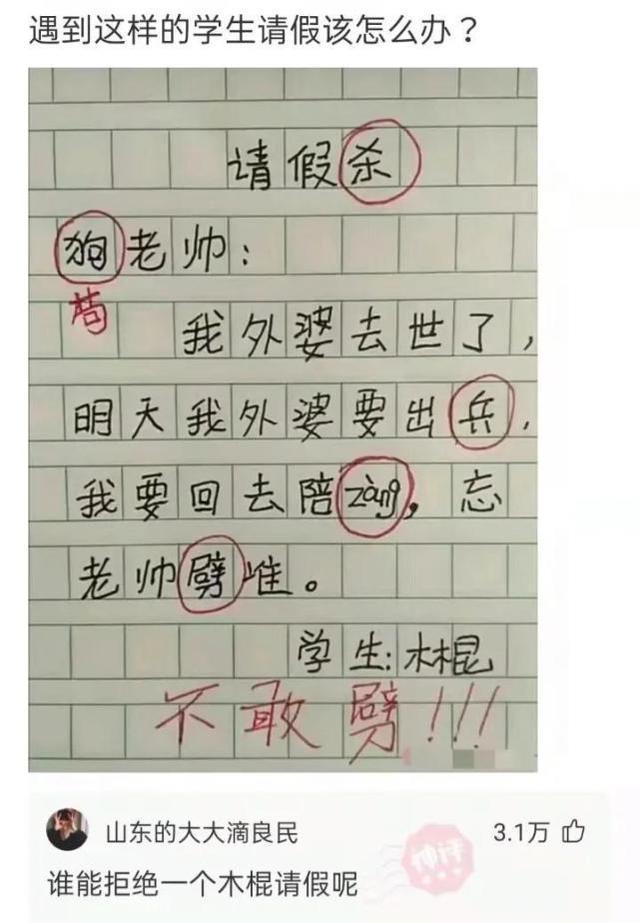 遇到这样的学生请假该怎么办？
请假杀
狗老帅：
苟
我外婆去世了，
明天我外婆要出兵，
我要回去陪zàng，忘
老帅劈唯。
学生：木棍
不敢劈！！！
山东的大大滴良民
3.1万
谁能拒绝一个木棍请假呢